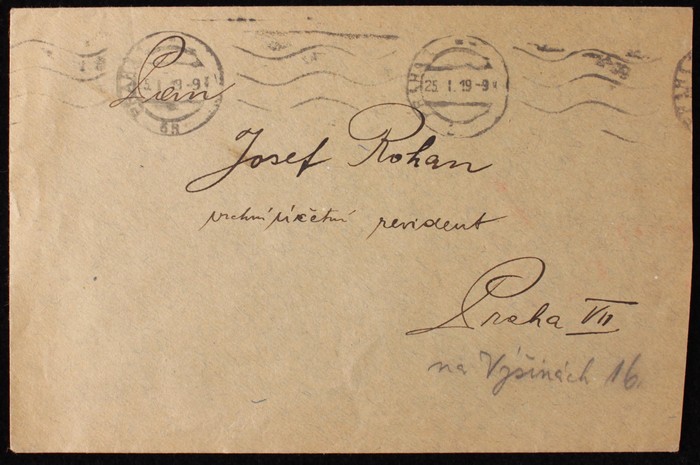 PRAHA 25. I. 19-9
Pan
Josef Rohan
vrchní účetní revident
Praha VII
na Výšinách 16.